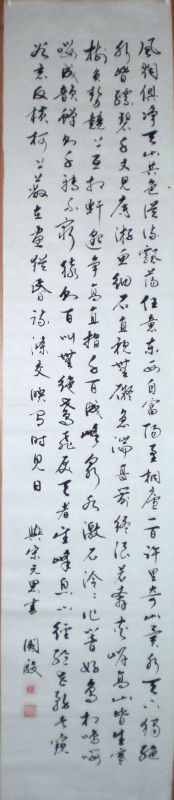 風煙俱淨天山共色從流飄蕩任意東西自富陽至桐廬一百許里奇山異水天下獨絕
水皆縹碧千丈見底游魚細石直視無礙急湍甚箭猛浪若奔夾岸高山皆生寒
樹負勢競上互相軒邈爭高直指千百成峰泉水激石泠泠作響好鳥相鳴嚶
嚶成韻蟬則千轉不窮猿則百叫無絕鳶飛戾天者望峰息心經綸世務者窺
谷忘反橫柯上蔽在晝猶昏疏條交映有時見日 與宋元思書 國